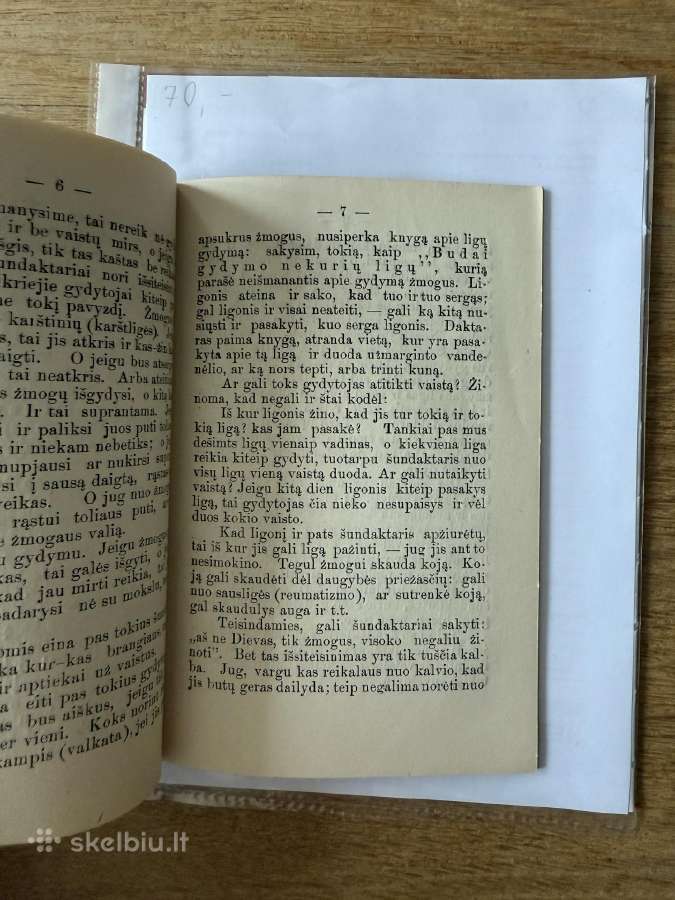 70,-
— 6 —
manysime, tai nereik
ir be vaistų mirs, o jeigu
tik tas kaštas be
šundaktariai nori
kriejie gydytojai kiteip
me tokį pavyzdį. Žmogus
karštinių (karštligės).
tai jis atkris ir kas-žin
daigti. O jeigu bus
tai neatkris. Arba
žmogų išgydysi, o
Ir tai suprantama.
ir paliksi juos puti
s ir niekam nebetiks; o
nupjausi ar nukirsi
si į sausą daigtą,
reikas. O jug nuo
rąstui toliaus puti, ar
žmogaus valią.
gydymu. Jeigu žmogus
kas, tai galės išgyti, o
kad jau mirti reikia,
padarysi nė su mokslu,
omis eina pas tokius
ka kur-kas brangiaus
ir aptiekai už vaistus.
a eiti pas tokius
as bus aiškus, jeigu
er vieni. Koks norint
kampis (valkata), jei jis
— 7 —
apsukrus žmogus, nusiperka knygą apie ligų
gydymą: sakysim, tokią, kaip „Budai
gydymo nekurių ligų”, kurią
parašė neišmanantis apie gydymą žmogus. Li-
gonis ateina ir sako, kad tuo ir tuo sergąs;
gal ligonis ir visai neateiti, — gali ką kitą nu-
siųsti ir pasakyti, kuo serga ligonis. Dakta-
ras paima knygą, atranda vietą, kur yra pasa-
kyta apie tą ligą ir duoda užmarginto vande-
nėlio, ar ką nors tepti, arba trinti kuną.
Ar gali toks gydytojas atitikti vaistą? Ži-
noma, kad negali ir štai kodėl:
Iš kur ligonis žino, kad jis tur tokią ir to-
kią ligą? kas jam pasakė? Tankiai pas mus
dešimts ligų vienaip vadinas, o kiekviena liga
reikia kiteip gydyti, tuotarpu šundaktaris nuo
visų ligų vieną vaistą duoda. Ar gali nutaikyti
vaistą? Jeigu kitą dien ligonis kiteip pasakys
ligą, tai gydytojas čia nieko nesupaisys ir vėl
duos kokio vaisto.
Kad ligonį ir pats šundaktaris apžiurėtų,
tai iš kur jis gali ligą pažinti, — jug jis ant to
nesimokino. Tegul žmogui skauda koją. Ko-
ją gali skaudėti dėl daugybės priežasčių: gali
nuo sausligės (reumatizmo), ar sutrenkė koją,
gal skaudulys auga ir t.t.
Teisindamies, gali šundaktariai sakyti:
„aš ne Dievas, tik žmogus, visoko negaliu ži-
noti”. Bet tas išsiteisinimas yra tik tuščia kal-
ba. Jug, vargu kas reikalaus nuo kalvio, kad
jis butų geras dailyda; teip negalima norėti nuo
skelbiu.lt